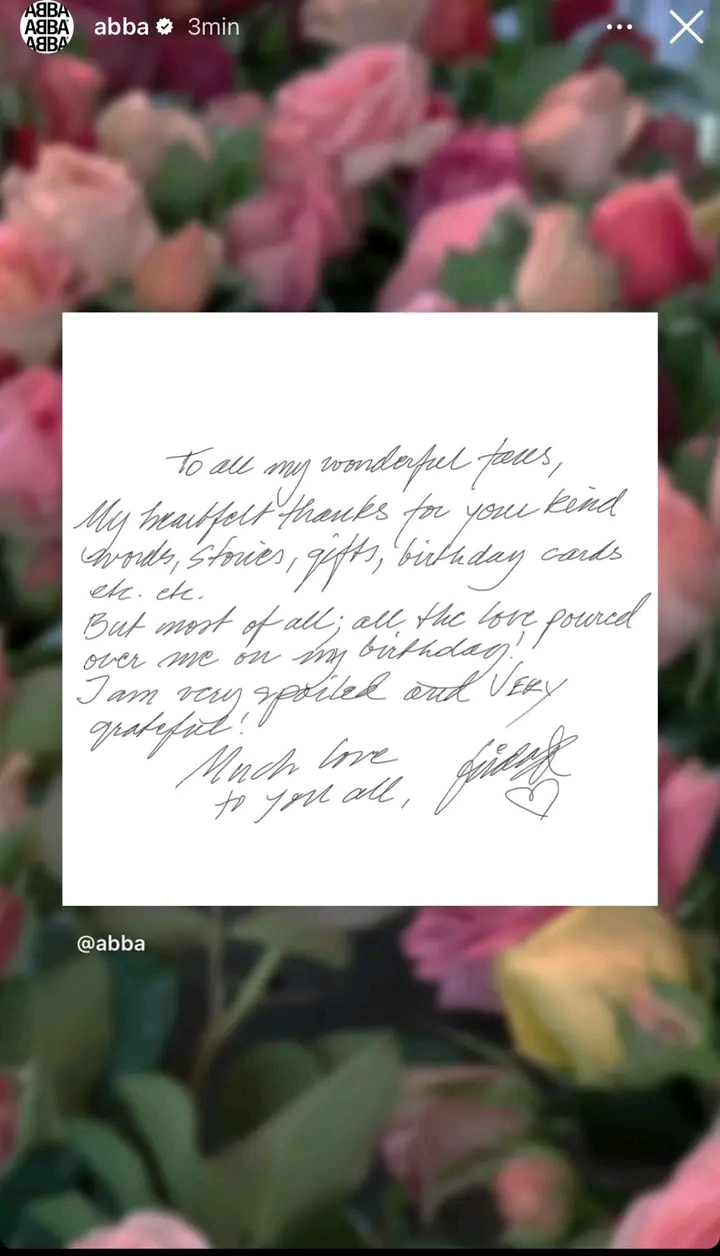 ABBA
ABBA
ABBA
abba 3min
To all my wonderful fans,
My heartfelt thanks for your kind
words, stories, gifts, birthday cards
etc. etc.
But most of all; all the love poured
over me on my birthday!
I am very spoiled and VERY
grateful!
Much love
to you all, Frida
@abba